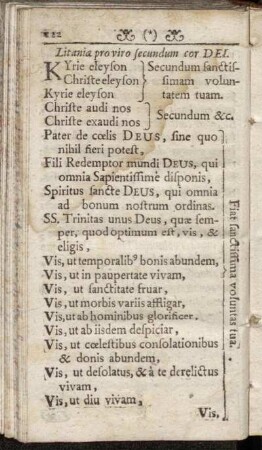 122 (*)
Litania pro viro secundum cor DEI.
KYrie eleyson } Secundum sanctis-
Christe eleyson } simam volun-
Kyrie eleyson } tatem tuam.
Christe audi nos } Secundum &c.
Christe exaudi nos }
Pater de cœlis DEUS, sine quo
nihil fieri potest,
Fili Redemptor mundi DEUS, qui
omnia Sapientissimè disponis,
Spiritus sancte DEUS, qui omnia
ad bonum nostrum ordinas.
SS. Trinitas unus Deus, quæ sem-
per, quod optimum est, vis, &
eligis,
Vis, ut temporalibꝰ bonis abundem,
Vis, ut in paupertate vivam,
Vis, ut sanctitate fruar,
Vis, ut morbis variis affligar,
Vis, ut ab hominibus glorificer.
Vis, ut ab iisdem despiciar,
Vis, ut cœlestibus consolationibus
& donis abundem,
Vis, ut desolatus, & à te derelictus
vivam,
Vis, ut diu vivam,
Vis,
Fiat sanctissima voluntas tua.